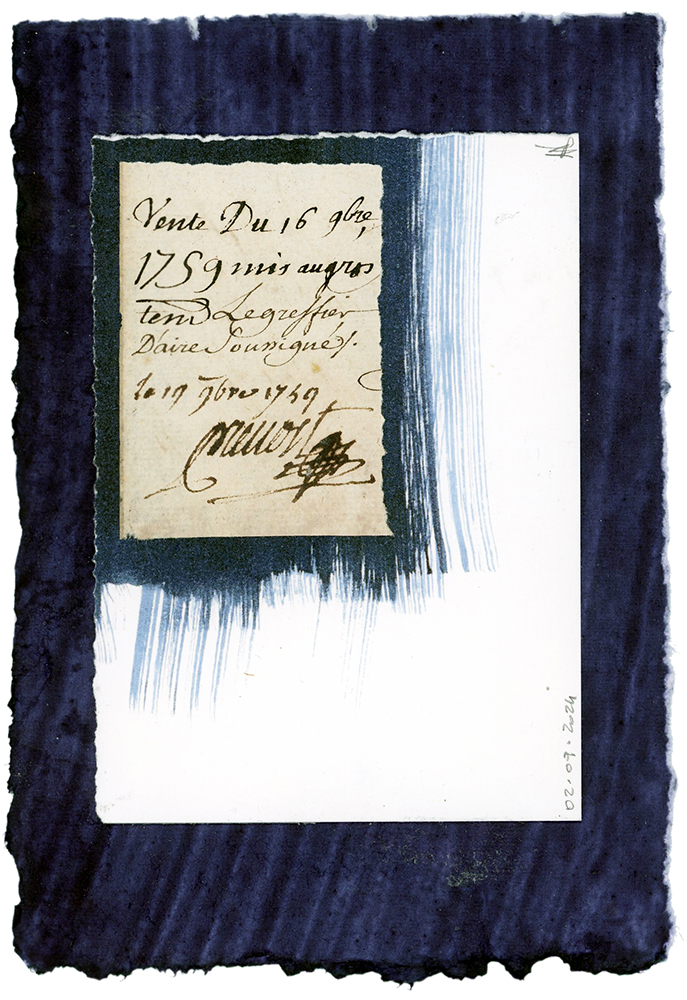 Vente Du 16 9bre
1759 mis au gros
tem Le greffier
D'aire Soussigné
le 19 9bre 1759
02.09.2024